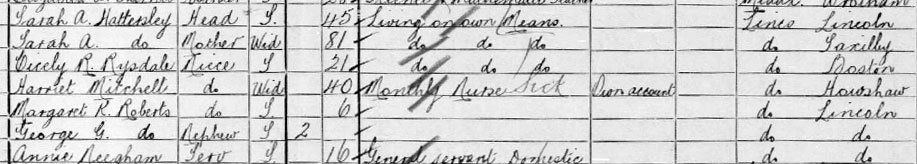 Sarah A. Hattersley Head S 45 Living on own Means. Lincs Lincoln
Sarah A. do Mother Wid 81 do do do do Saxilby
Cicely R. Rysdale Niece S 21 do do do do Boston
Harriet Mitchell do Wid 40 Monthly Nurse Sick Own account do Howshaw
Margaret K. Roberts do S 6 do Lincoln
George G. do Nephew S 2 do do
Annie Needham Serv S 16 General servant Domestic do do